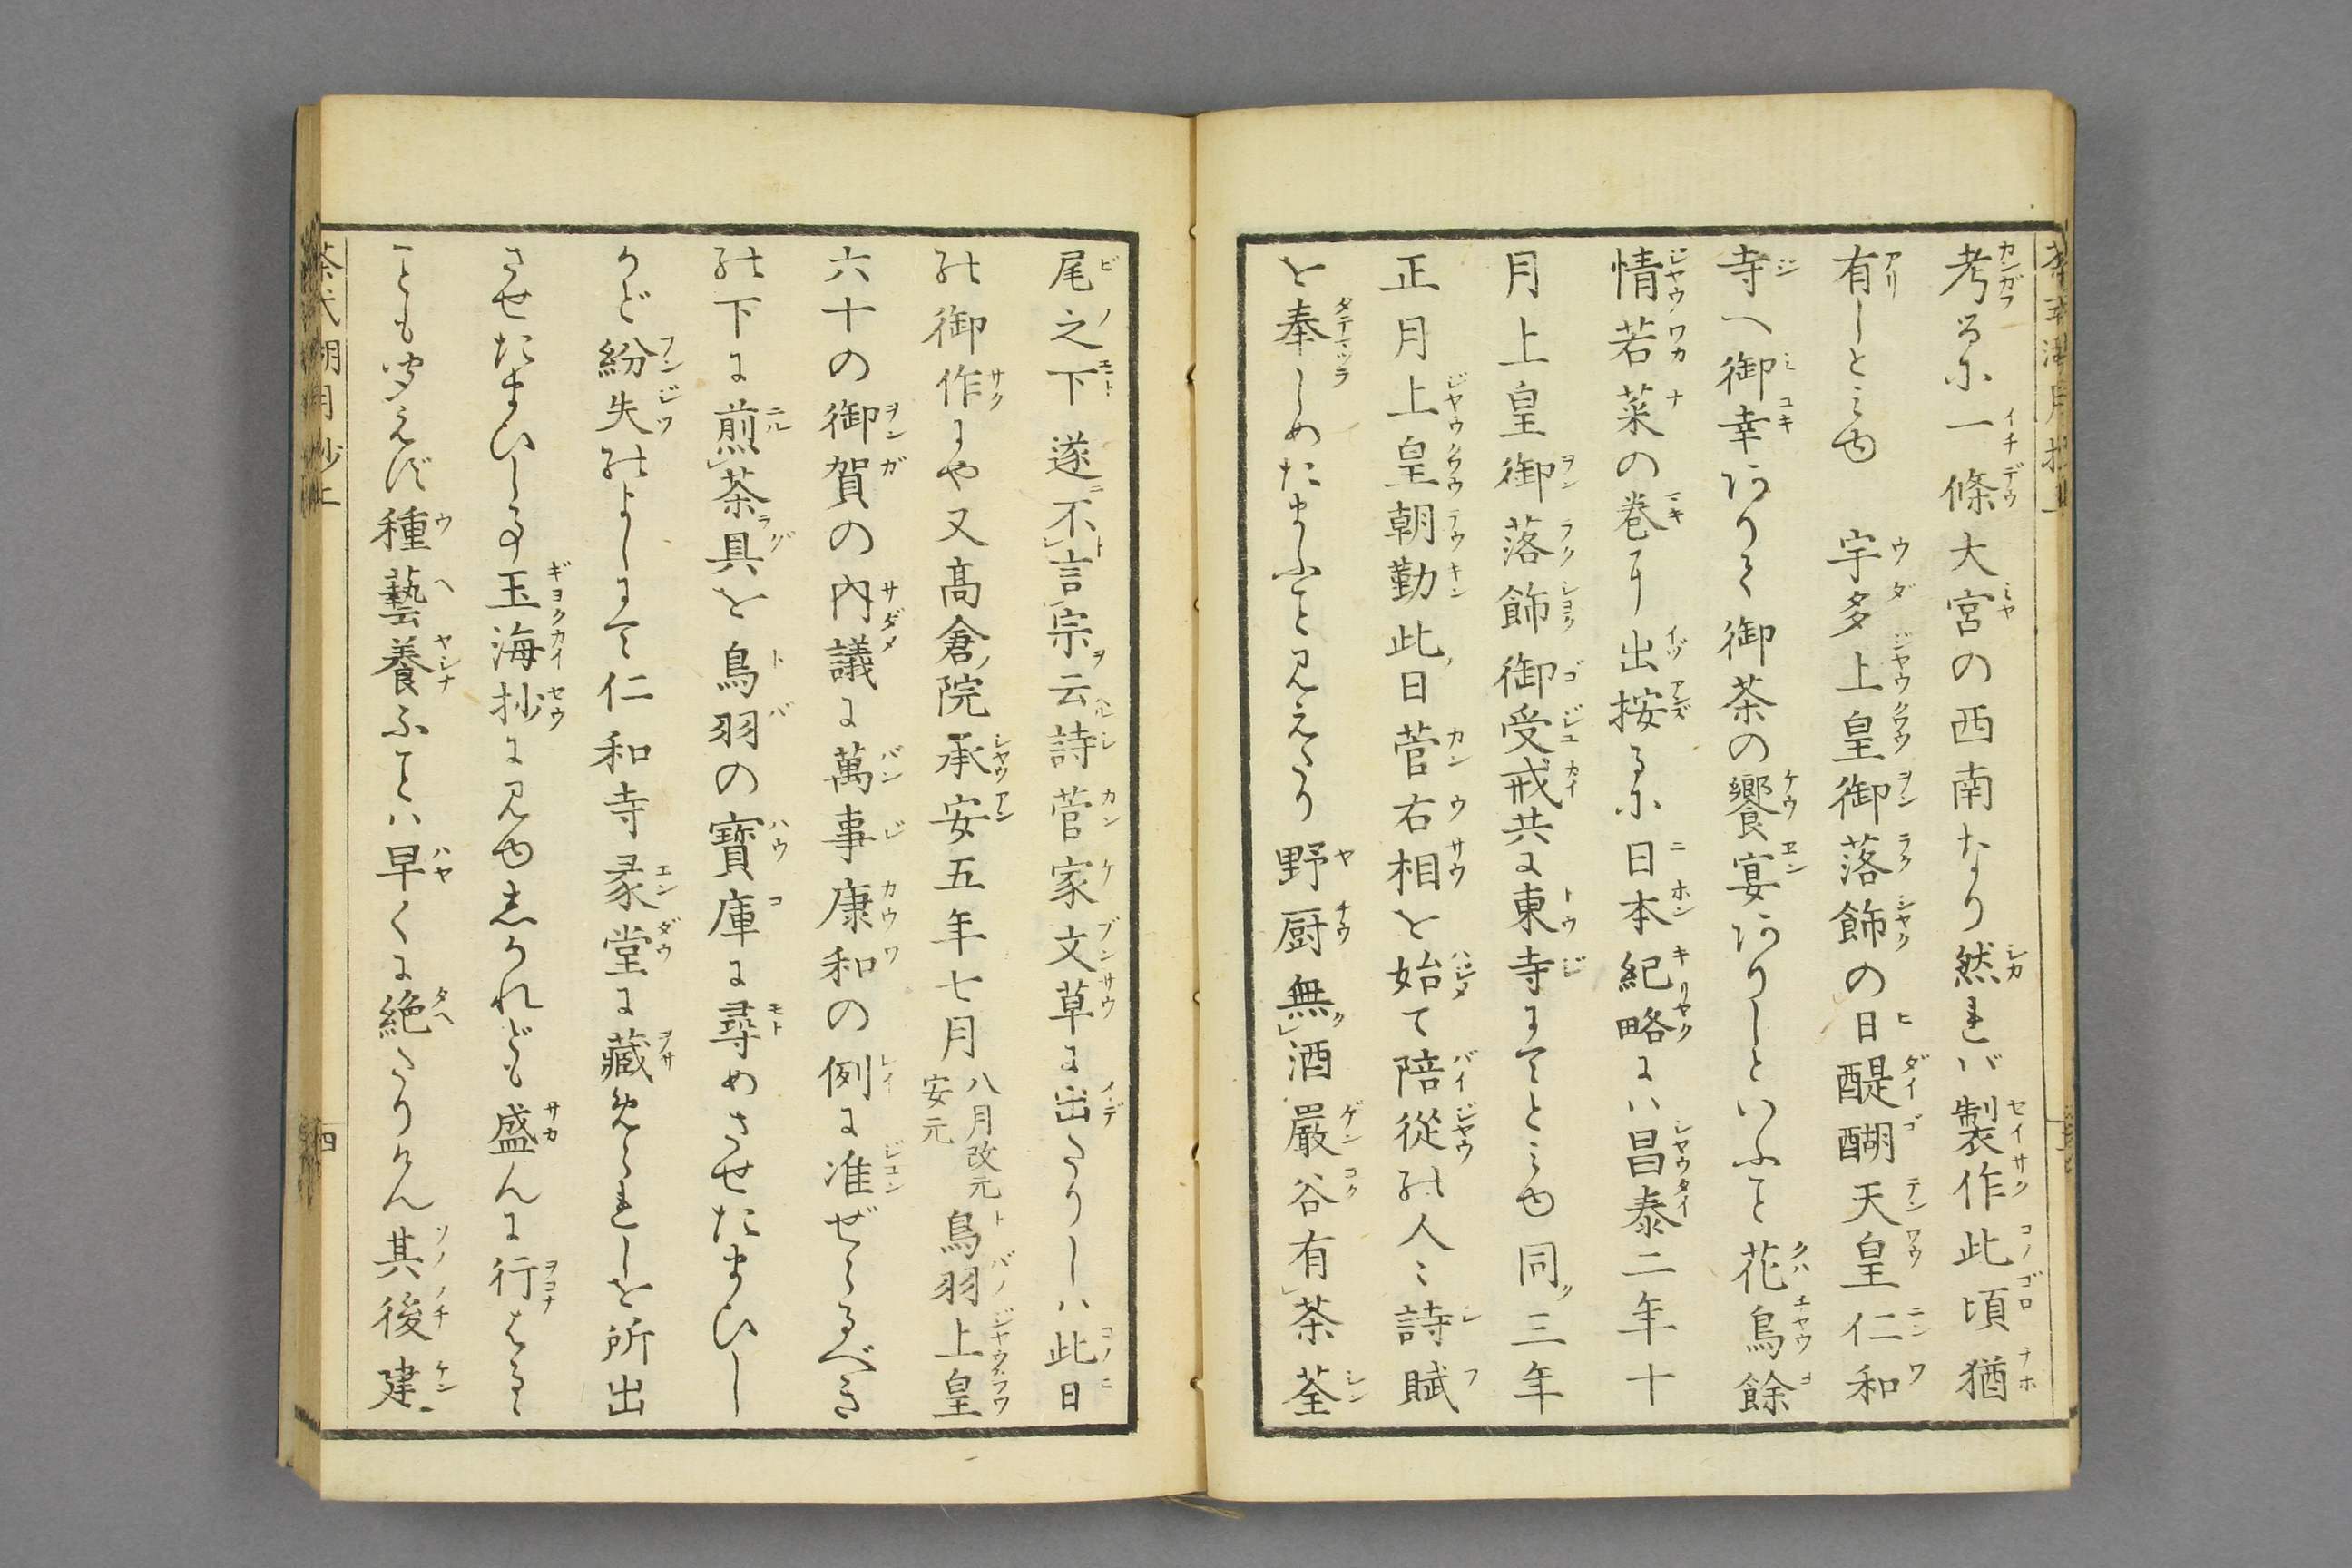 考るに一條大宮の西南なり然れバ製作此頃猶
有しとミゆ　宇多上皇御落飾の日醍醐天皇仁和
寺へ御幸ありて御茶の饗宴ありしといふこと花鳥餘
情若菜の巻に出按るに日本紀略にハ昌泰二年十
月上皇御落飾御受戒共に東寺にてとミゆ同三年
正月上皇朝勤此日菅右相を始て陪從の人〻詩賦
を奉しめたまふこと見えたり野厨無酒嚴谷有茶荃
尾之下遂不言宗云詩菅家文草に出たりしハ此日
の御作にや又髙倉院承安五年七月八月改元安元鳥羽上皇
六十の御賀の内議に萬事康和の例に准ぜらるべき
の下に煎茶具を鳥羽の寳庫に尋めさせたまひし
かど紛失のよしにて仁和寺円堂に藏められしを所出
させたまひし事玉海抄に見ゆしかれども盛んに行はるゝ
ことも聞えず種藝養ふことハ早くに絶たりけん其後建
茶式湖月抄上
四